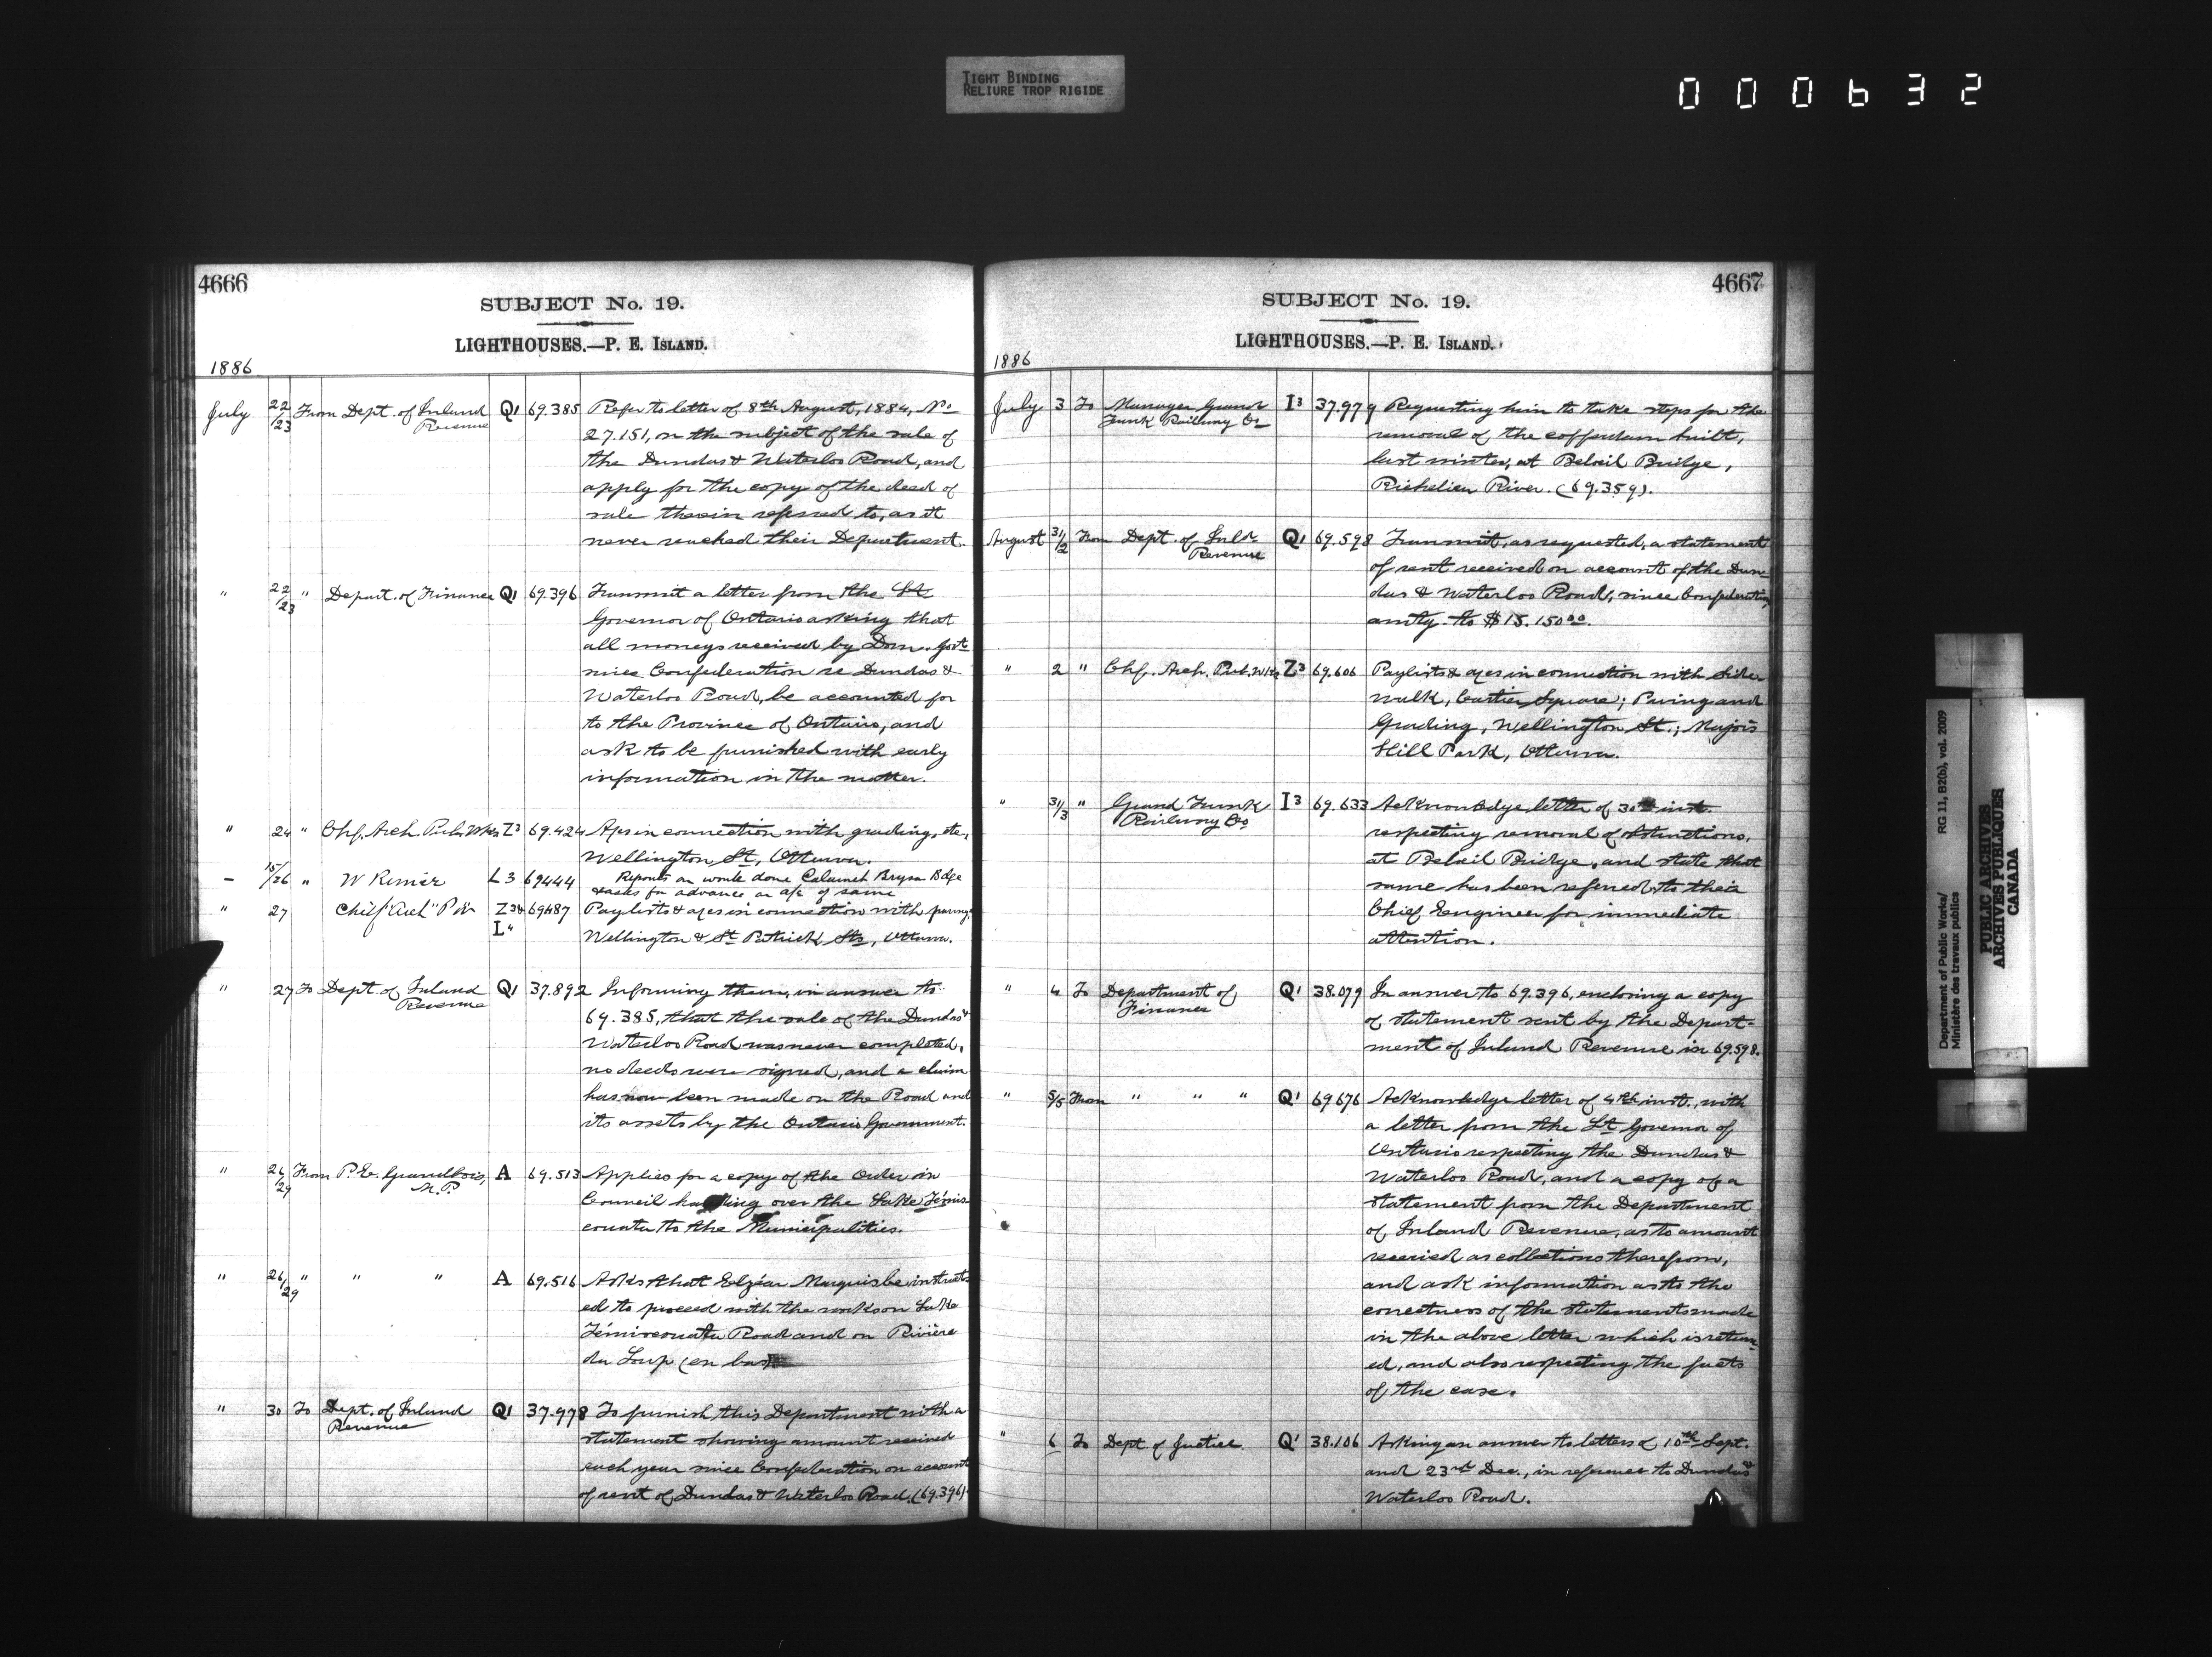 TIGHT BINDING
RELIURE TROP RIGIDE
000632
4666
SUBJECT No. 19.
LIGHTHOUSES.—P. E. ISLAND.
1886
July 22/23 From Dept. of Inland Revenue Q1 69.385 Refer to letter of 8th August, 1884, No.
27.151, on the subject of the sale of
the Dundas & Waterloo Road, and
apply for the copy of the deed of
sale therein referred to, as it
never reached their Department.
" 22/23 " Depart. of Finance Q1 69.396 Transmit a letter from the Lt.
Governor of Ontario asking that
all moneys received by Dom. Govt.
since Confederation re Dundas &
Waterloo Road, be accounted for
to the Province of Ontario, and
ask to be furnished with early
information in the matter.
" 24 " Chf. Arch. Pub. Wks Z3 69.424 Apes in connection with grading, etc.,
Wellington St., Ottawa.
– 15/26 " W Rimer L3 69444 Reports on work done Calumet Bryson Bdge
& asks for advance on a/c of same
" 27 Chief "Arch" P W Z3 & L" 69487 Paylists & apes in connection with paving,
Wellington & St. Patrick Sts, Ottawa.
" 27 To Dept. of Inland Revenue Q1 37.892 Informing them, in answer to
69.385, that the sale of the Dundas &
Waterloo Road was never completed,
no deeds were signed, and a claim
has now been made on the Road and
its assets by the Ontario Government.
" 26/29 From P. E. Grandbois, M.P. A 69.513 Applies for a copy of the Order in
Council handing over the Lake Témis
couata to the Municipalities.
" 26/29 " " " A 69.516 Asks that Elzéar Marquis be instruct
ed to proceed with the works on Lake
Témiscouata Road and on Rivière
du Loup (en bas)
" 30 To Dept. of Inland Revenue Q1 37.978 To furnish this Department with a
statement showing amount received
each year since Confederation on account
of rent of Dundas & Waterloo Road. (69.396)
4667
SUBJECT No. 19.
LIGHTHOUSES.—P. E. ISLAND.
1886
July 3 To Manager Grand Trunk Railway Co I3 37.979 Requesting him to take steps for the
removal of the cofferdam built,
last winter, at Beloeil Bridge,
Richelieu River. (69.359).
August 31/2 From Dept. of Inld. Revenue Q1 69.598 Transmit, as requested, a statement
of rent received on account of the Dun-
das & Waterloo Road, since Confederation
amtg. to $15.150 00.
" 2 " Chf. Arch. Pub. Wks Z3 69.606 Paylists & apes in connection with Side
walk, Cartier Square; Paving and
Grading, Wellington St.; Majors
Hill Park, Ottawa.
" 31/3 " Grand Trunk Railway Co I3 69.633 Acknowledge letter of 30th inst.
respecting removal of obstructions,
at Beloeil Bridge, and state that
same has been referred to their
Chief Engineer for immediate
attention.
" 4 To Department of Finance Q1 38.079 In answer to 69.396, enclosing a copy
of statement sent by the Depart-
ment of Inland Revenue in 69.598.
" 5/5 From " " " Q1 69676 Acknowledge letter of 4th inst., with
a letter from the Lt. Governor of
Ontario respecting the Dundas &
Waterloo Road, and a copy of a
statement from the Department
of Inland Revenue, as to amount
received as collections therefrom,
and ask information as to the
correctness of the statements made
in the above letter which is return-
ed, and also respecting the facts
of the case.
" 6 To Dept. of Justice Q1 38.106 Asking an answer to letters of 10th Sept.
and 23rd Dec., in reference to Dundas &
Waterloo Road.
Department of Public Works/ RG 11, B2(b), vol. 2009
Ministère des travaux publics
PUBLIC ARCHIVES
ARCHIVES PUBLIQUES
CANADA